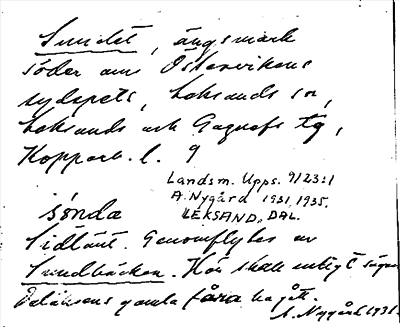 Sundet, ängsmark
söder om Östervikens
sydspets, Leksands sn,
Leksands och Gagnefs tg,
Kopparb. l. 9
Landsm. Upps. 9/23:1
A. Nygård 1931, 1935.
LEKSAND, DAL.
sønda
Sidlänt. Genomflytes av
Sundbäcken. Här skall enligt sägen
Dalälvens gamla fåra ha gått.
A. Nygård 1931.